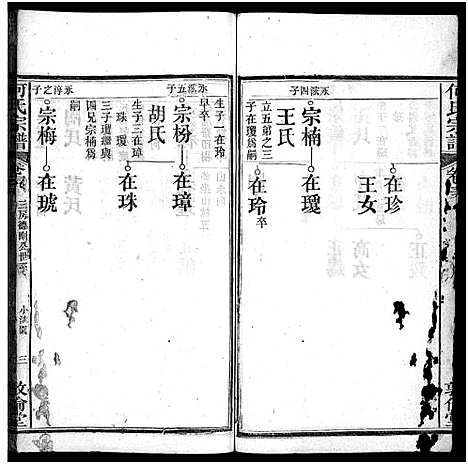 何氏宗譜
在珍
王女
永濱四子
宗楠 在瓊
王氏
立五弟之三
子在瓊爲嗣
在玲 卒
早卒
生子一在玲
永濱五子
宗枌 在璋
胡氏
生子三在璋
珠 瓊
在珠
三子瓊繼與
四兄宗楠爲
嗣
永淳之子
宗梅 在琥
何氏宗譜
三房德剛公世系
三
敦倫堂